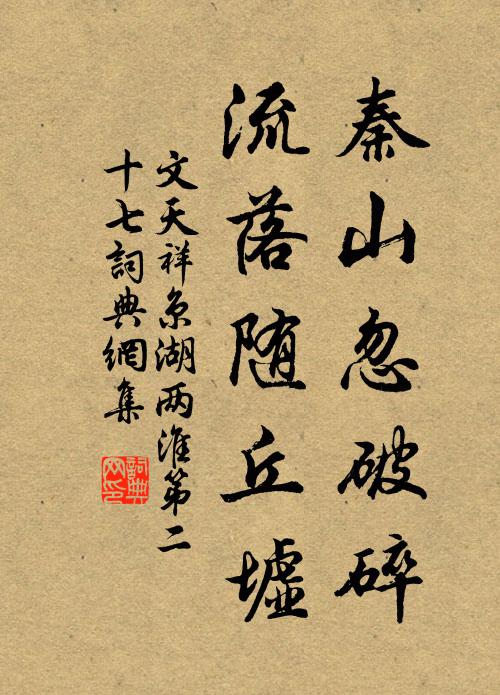 秦山忽破碎
流落随丘墟
文天祥京湖两淮第二
十七詞典網集
詞典網印